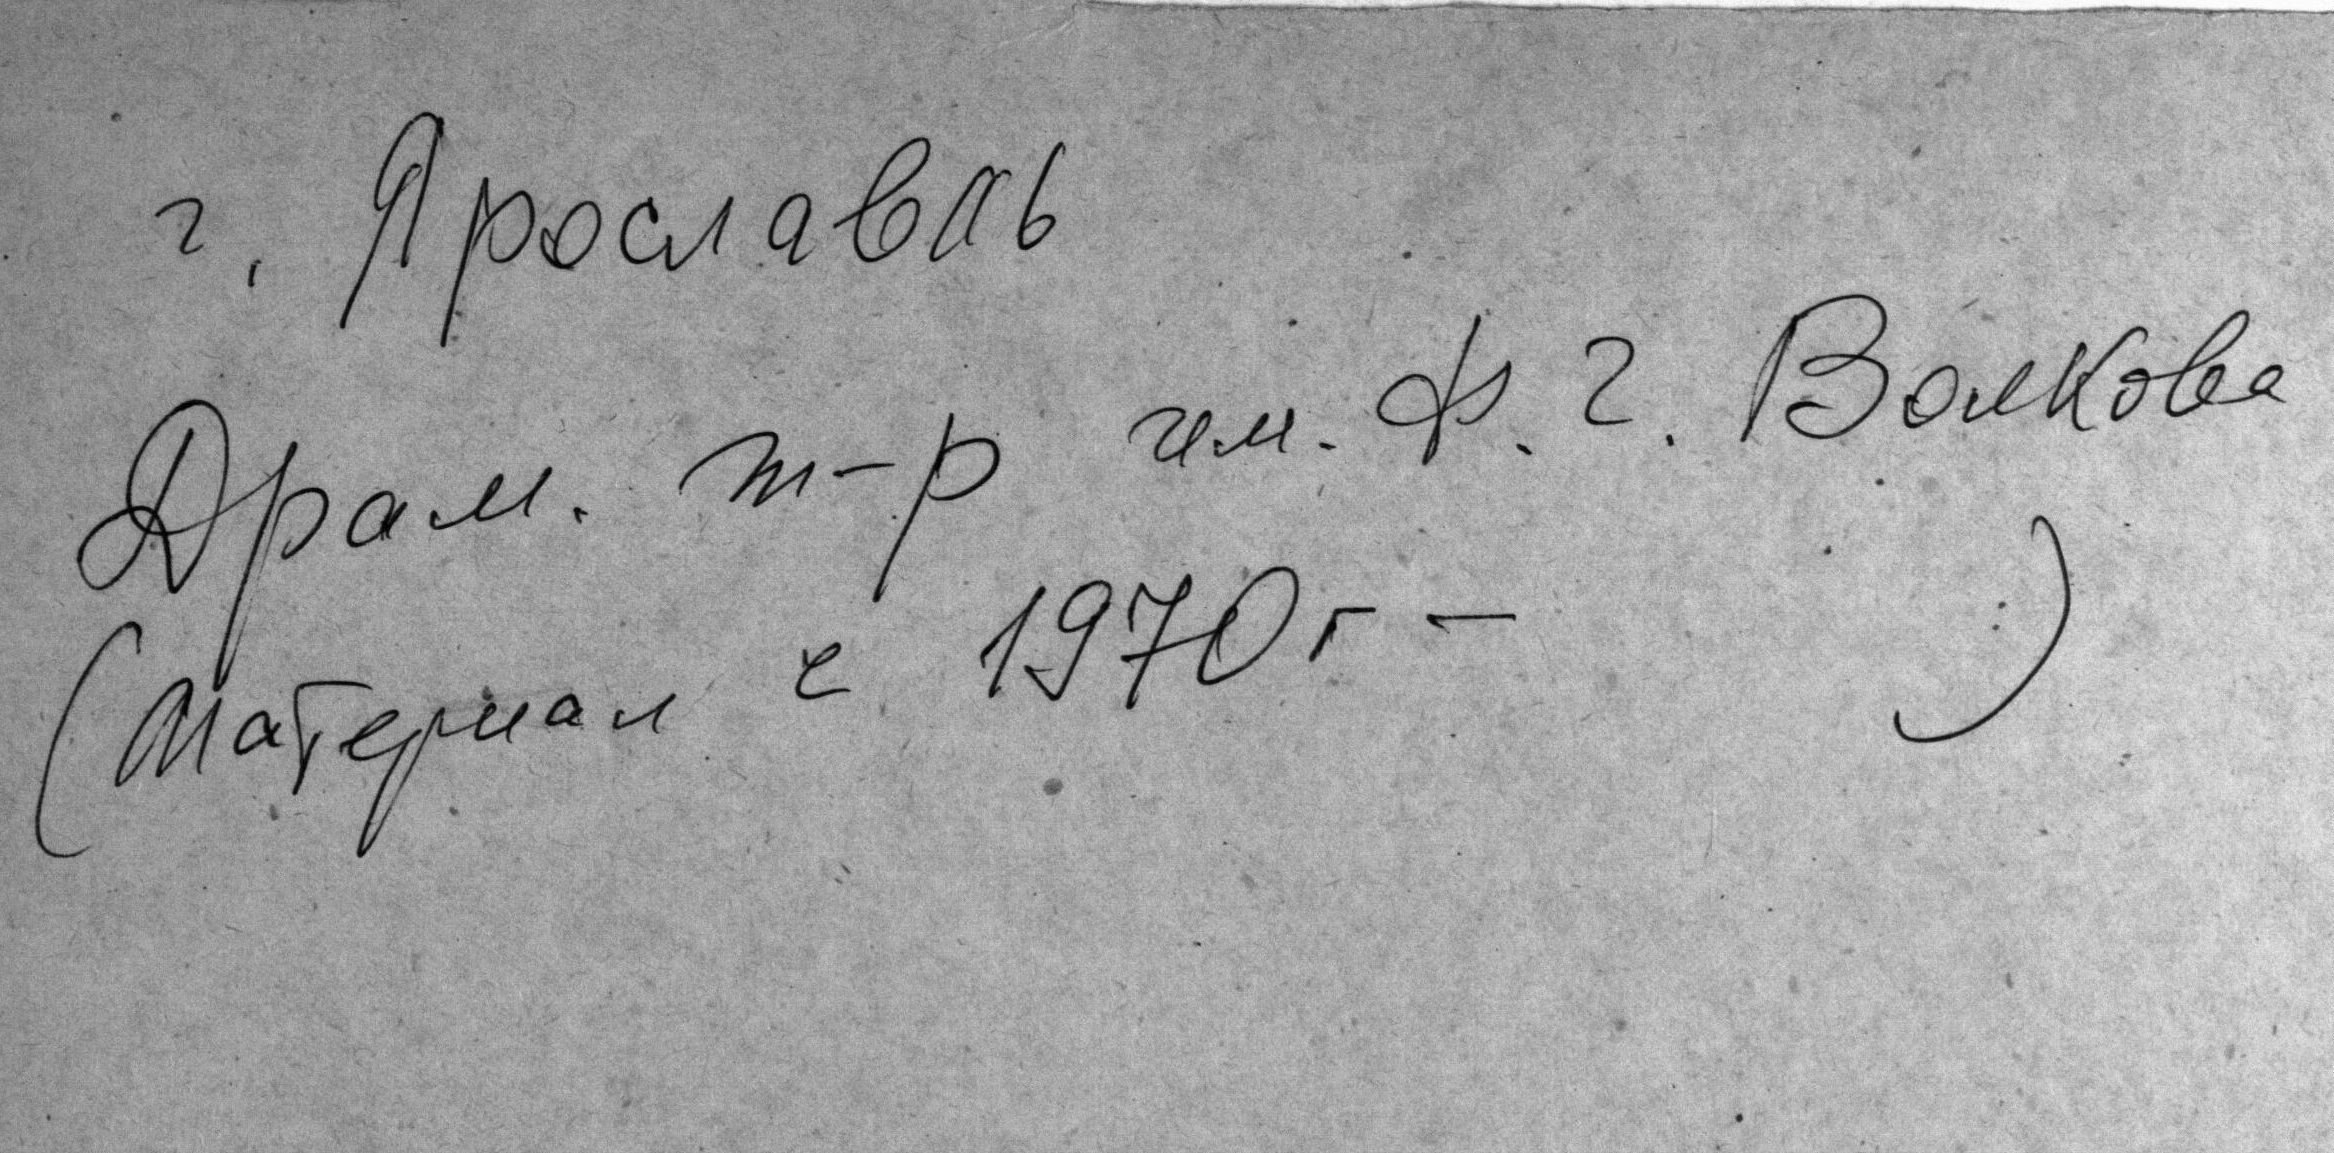 г. Ярославль
Драм. т-р им. Ф. Г. Волкова
(Материал с 1970г — )